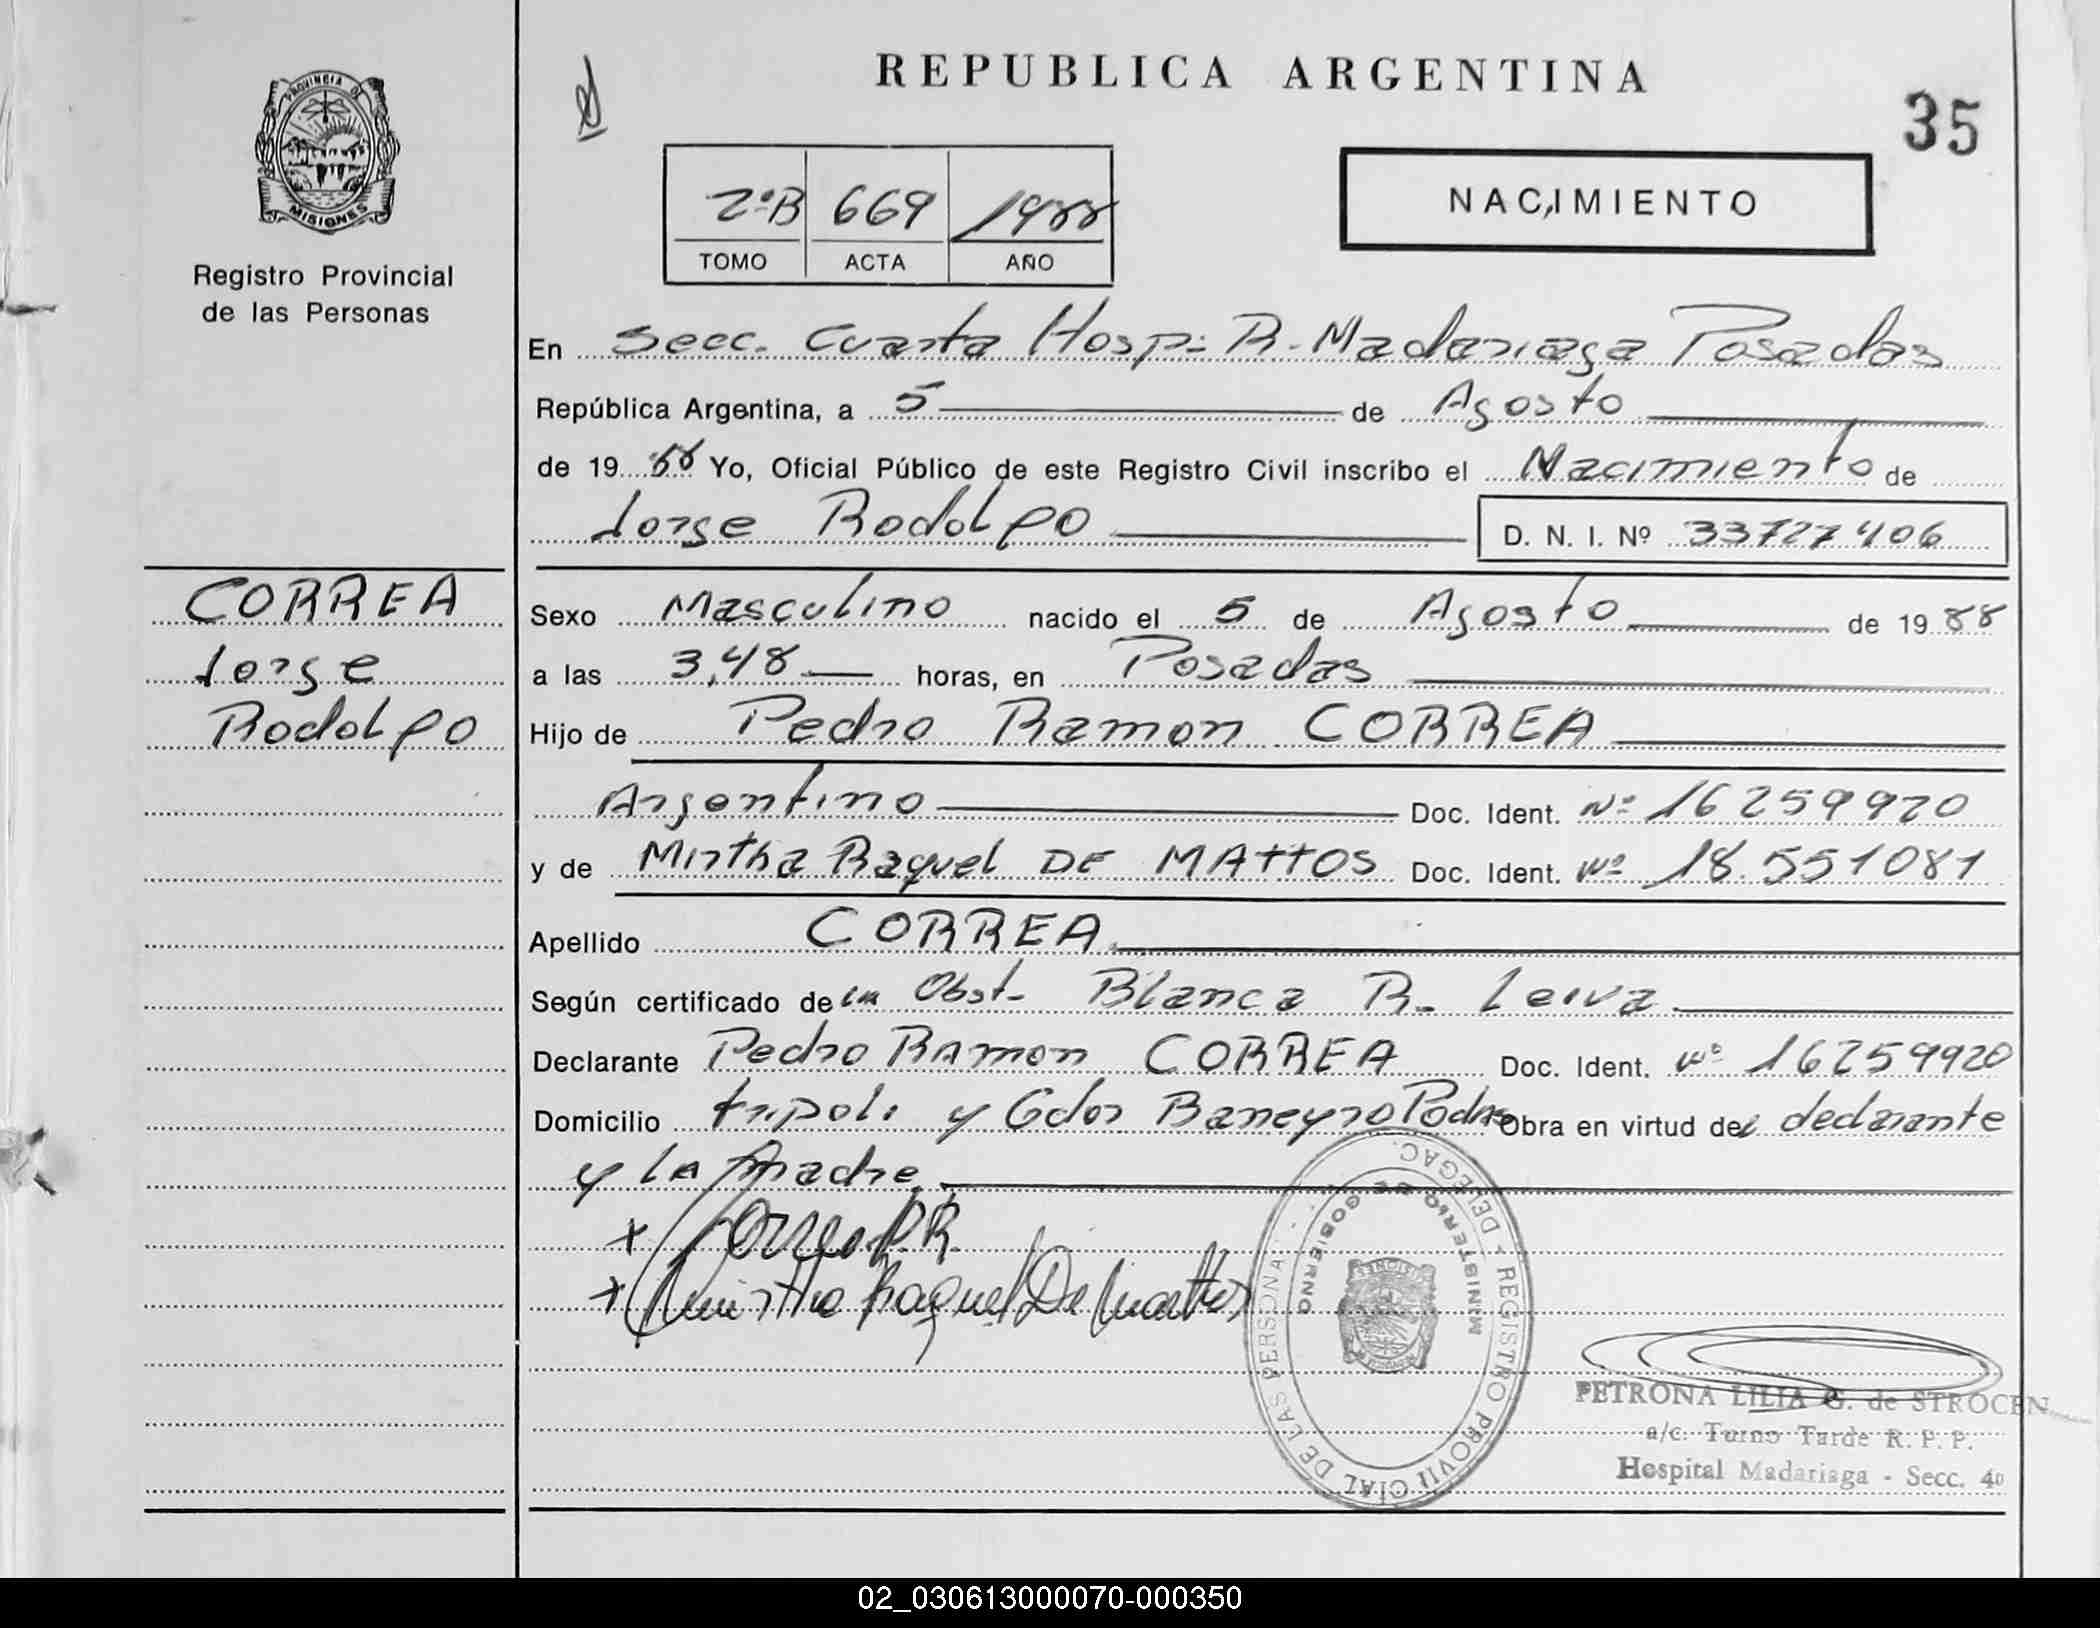 REPUBLICA ARGENTINA
35
PROVINCIA DE
MISIONES
Registro Provincial
de las Personas
2ºB 669 1988
TOMO ACTA AÑO
NACIMIENTO
En Secc. Cuarta Hosp. R. Madariaga Posadas
República Argentina, a 5 de Agosto
de 19 88 Yo, Oficial Público de este Registro Civil inscribo el Nacimiento de
Jorge Rodolfo D. N. I. Nº 33727406
CORREA
Jorge
Rodolfo
Sexo Masculino nacido el 5 de Agosto de 19 88
a las 3,48 horas, en Posadas
Hijo de Pedro Ramon CORREA
Argentino Doc. Ident. Nº 16259920
y de Mirtha Raquel DE MATTOS Doc. Ident. Nº 18.551081
Apellido CORREA
Según certificado de la Obst. Blanca R. Leiva
Declarante Pedro Ramon CORREA Doc. Ident. Nº 16259920
Domicilio tripoli y Gdor Baneyro Pdas Obra en virtud del declarante
y la Madre
x Correa P.R.
x Mirtha Raquel De Mattos
REGISTRO PROVINCIAL DE LAS PERSONAS - DELEGAC.
MINISTERIO DE GOBIERNO
PETRONA LILIA G. de STROCEN
a/c. Turno Tarde R. P. P.
Hospital Madariaga - Secc. 4º
02_030613000070-000350